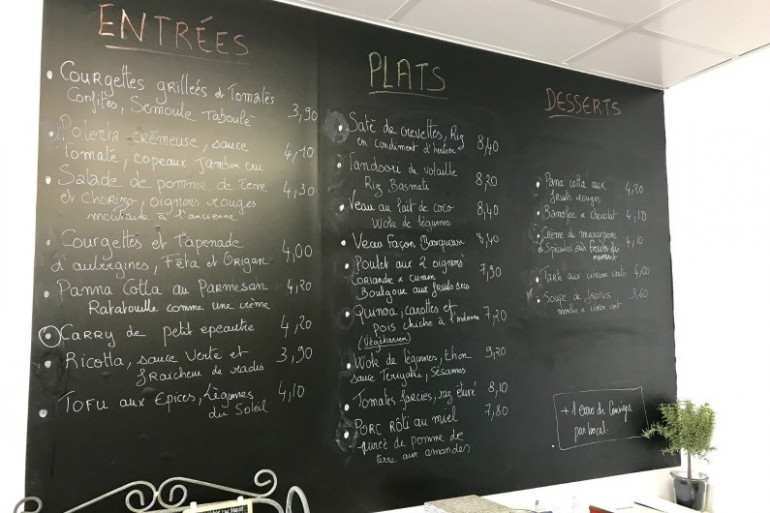 ENTRÉES
Courgettes grillées & Tomates
Confites, Semoule Taboulé 3,90
Polenta Crémeuse, sauce
Tomate, copeaux Jambon cru 4,10
Salade de pomme de terre
et Chorizo, oignons rouges 4,30
moutarde à l'ancienne
Courgettes et Tapenade 4,00
d'aubergines, Féta et Origan
Panna Cotta au Parmesan 4,20
Ratatouille comme une crème
Carry de petit epeautre 4,20
Ricotta, sauce Verte et 3,90
fraicheur de radis
Tofu aux Epices, Légumes 4,10
du Soleil
PLATS
Saté de crevettes, Riz 8,40
en condiment d'herbes
Tandoori de volaille 8,20
Riz Basmati
Veau au lait de coco 8,40
Wok de légumes
Veau façon Basquaise 8,40
Poulet aux 2 oignons 7,90
coriandre & cumin
Boulgour aux fruits secs
Quinoa, carottes et 7,20
Pois chiche à l'indienne
(Végétarien)
Wok de légumes, thon 9,20
sauce Teriyaki, Sésames
Tomates farcies, riz 8,10
Porc Rôti au miel 7,80
purée de pomme de
terre aux amandes
DESSERTS
Pana cotta aux 4,20
fruits rouges
Banofee & chocolat 4,10
Crème de mascarpone 4,10
& Spéculos aux fruits du
moment
Tarte aux citrons verts 4,00
Soupe de fraises 3,60
menthe & citron vert
+ 1 euro de Consigne
par bocal